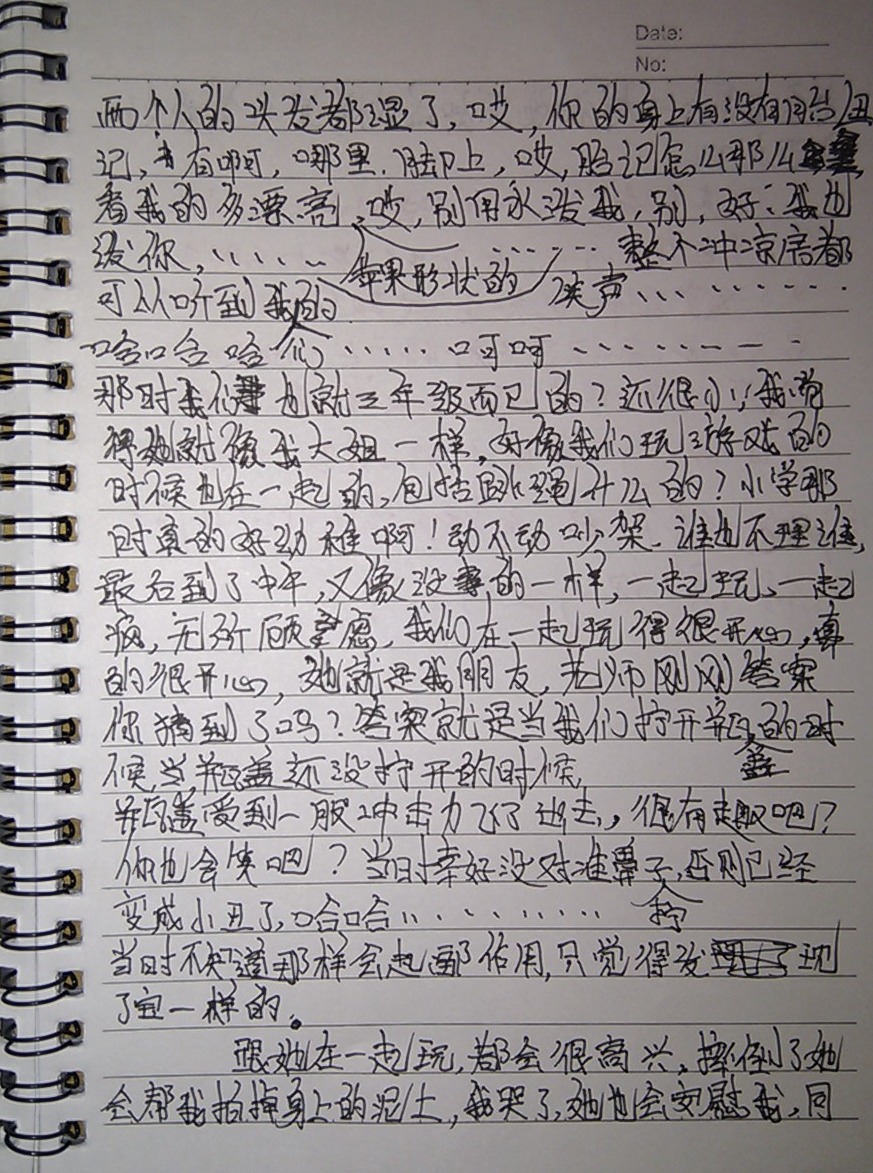 Date:
No:
两个人的头发都湿了,哎,你的身上有没有胎
记,有啊,哪里.脚上,哎,胎记怎么那么
看我的多漂亮,哎,别用水泼我,别,好:我也
泼你,…… 苹果形状的 …… 整个冲凉房都
可以听到我们的 笑声……
哈哈哈……呵呵……
那时我们也就三年级而已的?还很小,我觉
得她就像我大姐一样,好像我们玩游戏的
时候也在一起的,包括跳绳什么的?小学那
时真的好幼稚啊!动不动吵架.谁也不理谁,
最后到了中午,又像没事的一样,一起玩、一起
疯,无所顾虑,我们在一起玩得很开心,真
的很开心,她就是我朋友,老师刚刚答案
你猜到了吗?答案就是当我们拧开瓶盖的时
候,当瓶盖还没拧开的时候,
瓶盖受到一股冲击力飞了过去,很有趣吧?
你也会笑吧?当时幸好没对准鼻子,否则已经
变成小丑了,哈哈……
当时不知道那样会起那作用,只觉得发现
了宝一样的。
跟她在一起玩,都会很高兴,摔倒了她
会帮我拍掉身上的泥土,我哭了,她也会安慰我,同